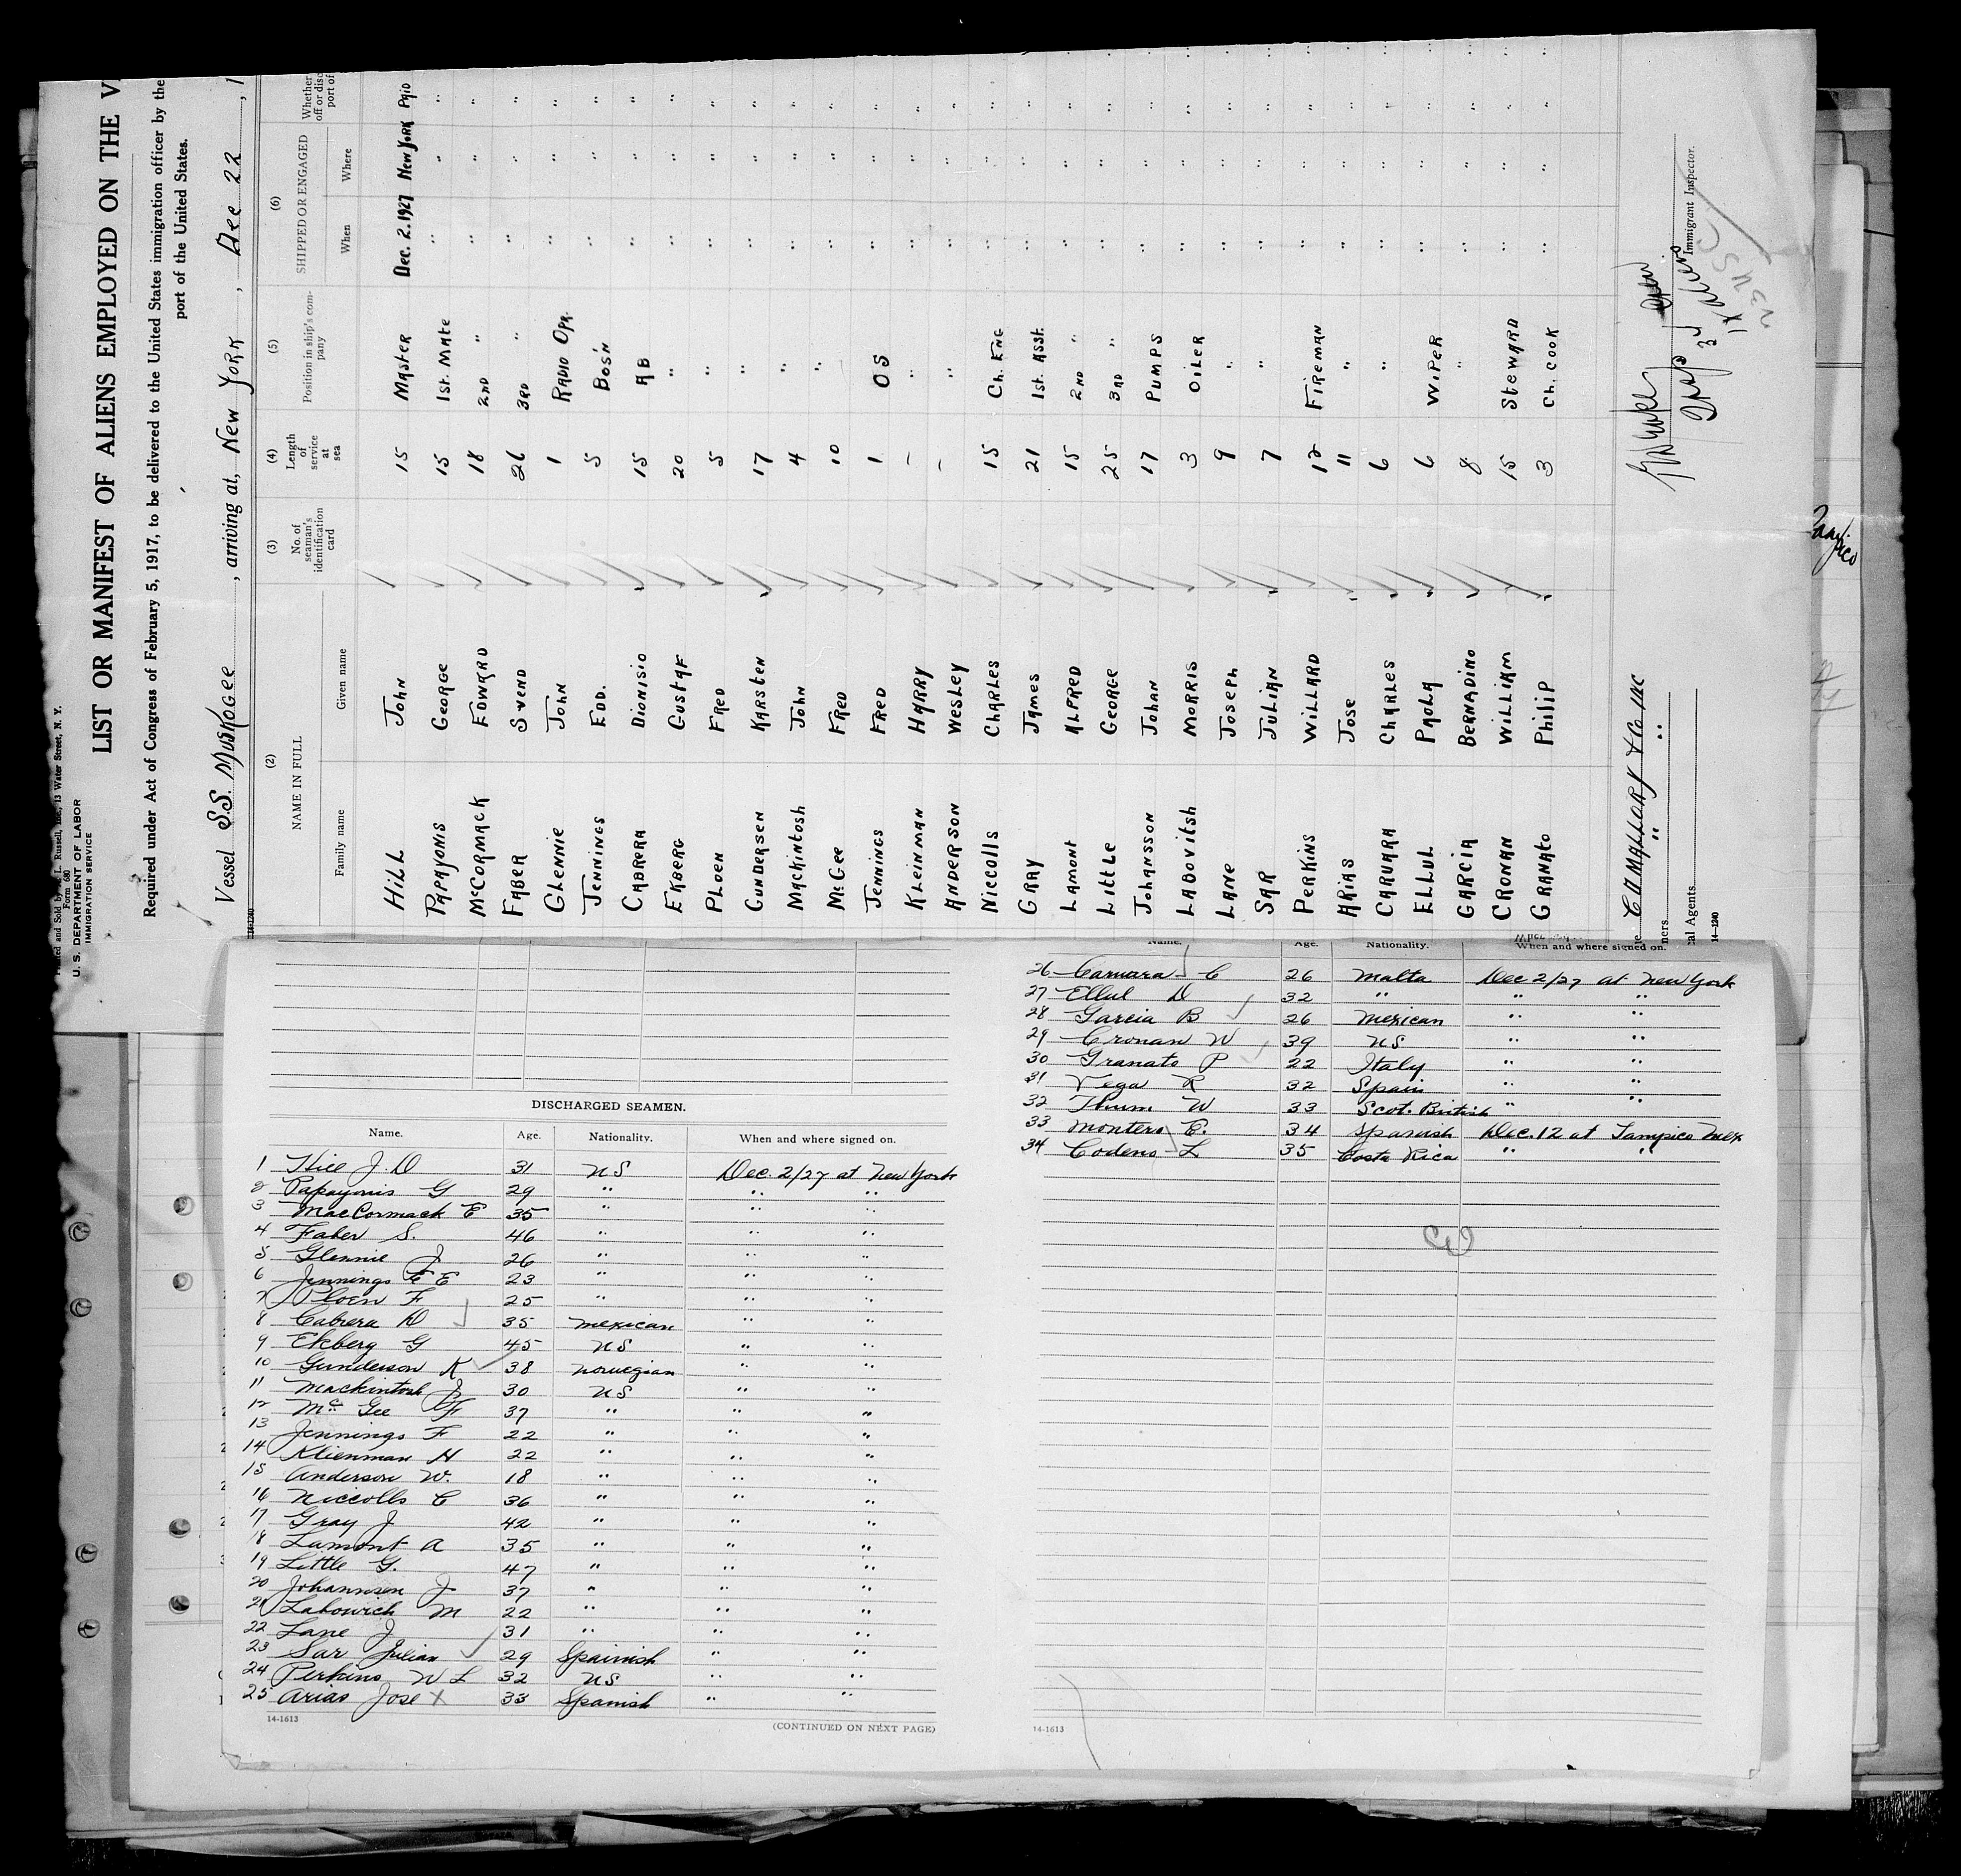 Printed and Sold by L. Russell, Inc., 13 Water Street, N. Y.
Form 680
U. S. DEPARTMENT OF LABOR
IMMIGRATION SERVICE
LIST OR MANIFEST OF ALIENS EMPLOYED ON THE V
Required under Act of Congress of February 5, 1917, to be delivered to the United States immigration officer by the
port of the United States.
Vessel S.S. Muskogee, arriving at, New York, Dec 22, 1
(2) (3) (4) (5) (6)
NAME IN FULL No. of seaman's identification card Length of service at sea Position in ship's company SHIPPED OR ENGAGED Whether
Family name Given name When Where
Hill John 15 Master Dec. 2. 1927 New York
Papayonis George 15 1st. Mate " " "
McCormack Edward 18 2nd " " " "
Faber Svend 26 3rd " " " "
Glennie John 1 Radio Opr. " " "
Jennings Edd. 5 Bos'n " " "
Cabrera Dionisio 15 AB " " "
Ekberg Gustaf 20 " " " "
Ploen Fred 5 " " " "
Gundersen Karsten 17 " " " "
Mackintosh John 4 " " " "
McGee Fred 10 " " " "
Jennings Fred 1 OS " " "
Kleinman Harry - " " " "
Anderson Wesley - " " " "
Niccolls Charles 15 Ch. Eng " " "
Gray James 21 1st. Asst. " " "
Lamont Alfred 15 2nd " " " "
Little George 25 3rd " " " "
Johansson Johan 17 Pumps " " "
Labovitsh Morris 3 Oiler " " "
Lane Joseph 9 " " " "
Sar Julian 7 " " " "
Perkins Willard 12 Fireman " " "
Arias Jose 11 " " " "
Caruara Charles 6 " " " "
Ellul Paola 6 Wiper " " "
Garcia Bernadino 8 " " " "
Cronan William 15 Steward " " "
Granato Philip 3 Ch. Cook " " "
C D Mallory & Co Inc
ners " "
al Agents
Immigrant Inspector.
14-1240
Tampico
DISCHARGED SEAMEN.
Name. Age. Nationality. When and where signed on.
1 Hill J. D 31 US Dec. 2/27 at New York
2 Papayonis G 29 " " "
3 MacCormack E 35 " " "
4 Faber S. 46 " " "
5 Glennie J 26 " " "
6 Jennings E 23 " " "
7 Ploen F 25 " " "
8 Cabrera D 35 Mexican " "
9 Ekberg G 45 US " "
10 Gunderson K 38 Norwegian " "
11 Mackintosh J 30 US " "
12 Mc Gee F 37 " " "
13 Jennings F 22 " " "
14 Klienman H 22 " " "
15 Anderson W. 18 " " "
16 Niccolls C 36 " " "
17 Gray J 42 " " "
18 Lamont A 35 " " "
19 Little G. 47 " " "
20 Johannsen J 37 " " "
21 Labowich M 22 " " "
22 Lane J 31 " " "
23 Sar Julian 29 Spainish " "
24 Perkins W L 32 US " "
25 Arias Jose X 33 Spanish " "
14-1613 (CONTINUED ON NEXT PAGE)
Name. Age. Nationality. When and where signed on.
26 Caruara C 26 Malta Dec 2/27 at New York
27 Ellul D 32 " " "
28 Garcia B 26 Mexican " "
29 Cronan W 39 US " "
30 Granato P 22 Italy " "
31 Vega R 32 Spain " "
32 Thum W 33 Scot. British " "
33 Montero E. 34 Spanish Dec. 12 at Tampico Mex
34 Codeno L 35 Costa Rica " "
14-1613